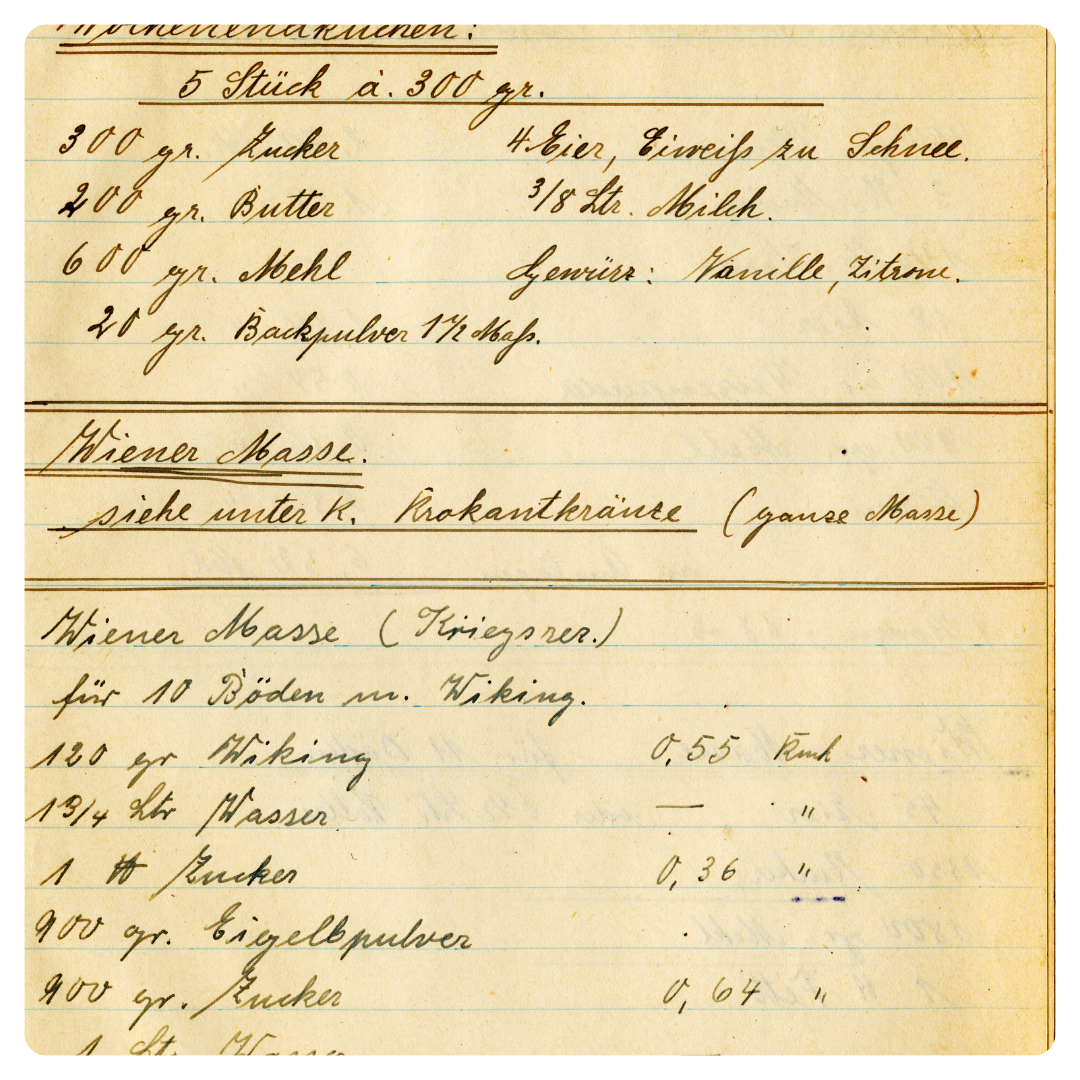 Wochenendkuchen:
5 Stück à. 300 gr.
300 gr. Zucker 4 Eier, Eiweiß zu Schnee.
200 gr. Butter 3/8 Ltr. Milch.
600 gr. Mehl Gewürz: Vanille, Zitrone.
20 gr. Backpulver 1 1/2 Maß.
Wiener Masse.
siehe unter K. Krokantkränze (ganze Masse)
Wiener Masse (Kriegsrez.)
für 10 Böden m. Wiking.
120 gr Wiking 0,55 Rmk
1 3/4 Ltr Wasser — "
1 ℔ Zucker 0,36 "
900 gr. Eigelbpulver
900 gr. Zucker 0,64 "
1 Ltr. Wasser